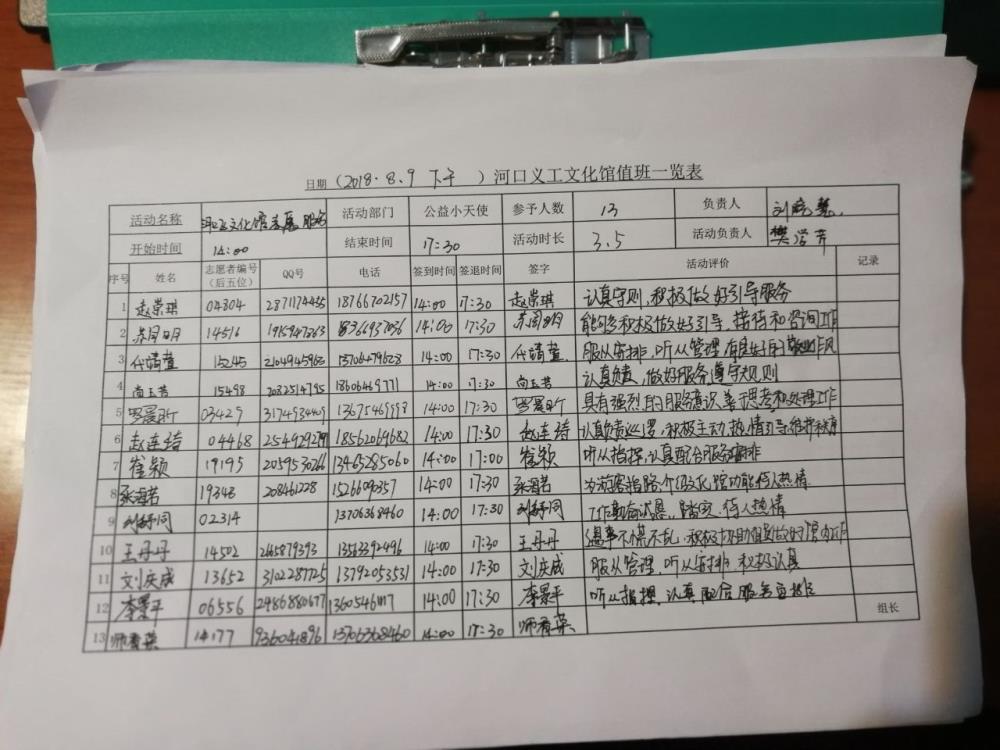 日期（2018.8.9 下午 ）河口义工文化馆值班一览表
活动名称 文化馆志愿服务 活动部门 公益小天使 参予人数 13 负责人 刘晓慧
开始时间 14:00 结束时间 17:30 活动时长 3.5 活动负责人 樊学芹
序号 姓名 志愿者编号（后五位） QQ号 电话 签到时间 签退时间 签字 活动评价 记录
1 赵崇琪 04804 2871174455 18766702157 14:00 17:30 赵崇琪 认真守则,积极做好引导服务
2 苏同明月 14516 1915947263 18366937036 14:00 17:30 苏同明月 能够积极做好引导、接待和咨询工作
3 代婧萱 15245 2104945963 13706479628 14:00 17:30 代婧萱 服从安排,听从管理,有良好的敬业作风
4 尚玉茗 15498 2082514795 18606469771 14:00 17:30 尚玉茗 认真负责,做好服务,遵守规则
5 罗晨昕 03429 3174934409 13675469998 14:00 17:30 罗晨昕 具有强烈的服务意识,善于思考和处理工作
6 赵连琦 04468 18562069682 14:00 17:30 赵连琦 认真负责巡逻,积极主动,热情引导,维护秩序
7 崔颖 19195 2039530266 13465285060 14:00 17:00 崔颖 听从指挥,认真配合服务安排
8 张涵茗 19348 208461228 1526609357 14:00 17:30 张涵茗 为游客指路,介绍文化馆功能,待人热情
9 刘舒同 02314 13706368460 14:00 17:30 刘舒同 工作勤奋诚恳、踏实、待人热情
10 王丹丹 14502 2665879393 13563392496 14:00 17:30 王丹丹 遇事不慌不乱,积极协助做好馆内工作
11 刘庆成 13652 3102287725 13792053531 14:00 17:30 刘庆成 服从管理,听从安排,积极认真
12 李景平 06556 2486880677 14:00 17:30 李景平 听从指挥,认真配合服务安排
13 师春荣 14177 936041896 13706368460 14:00 17:30 师春荣 组长